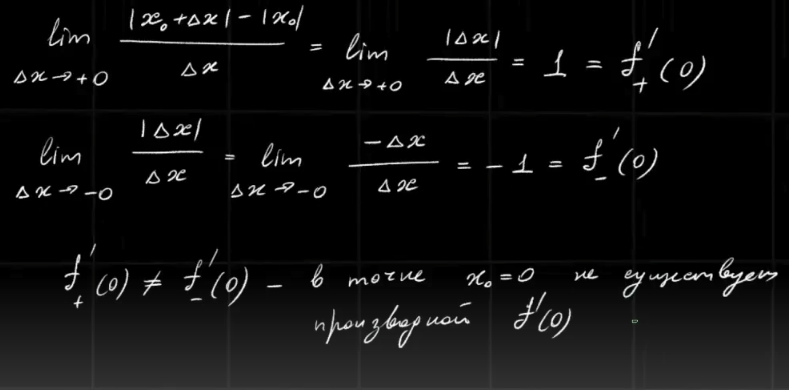 lim_{Δx→+0} (|x₀+Δx| - |x₀|)/Δx = lim_{Δx→+0} |Δx|/Δx = 1 = f'₊(0)
lim_{Δx→-0} |Δx|/Δx = lim_{Δx→-0} (-Δx)/Δx = -1 = f'₋(0)
f'₊(0) ≠ f'₋(0) - в точке x₀=0 не существует
производной f'(0)